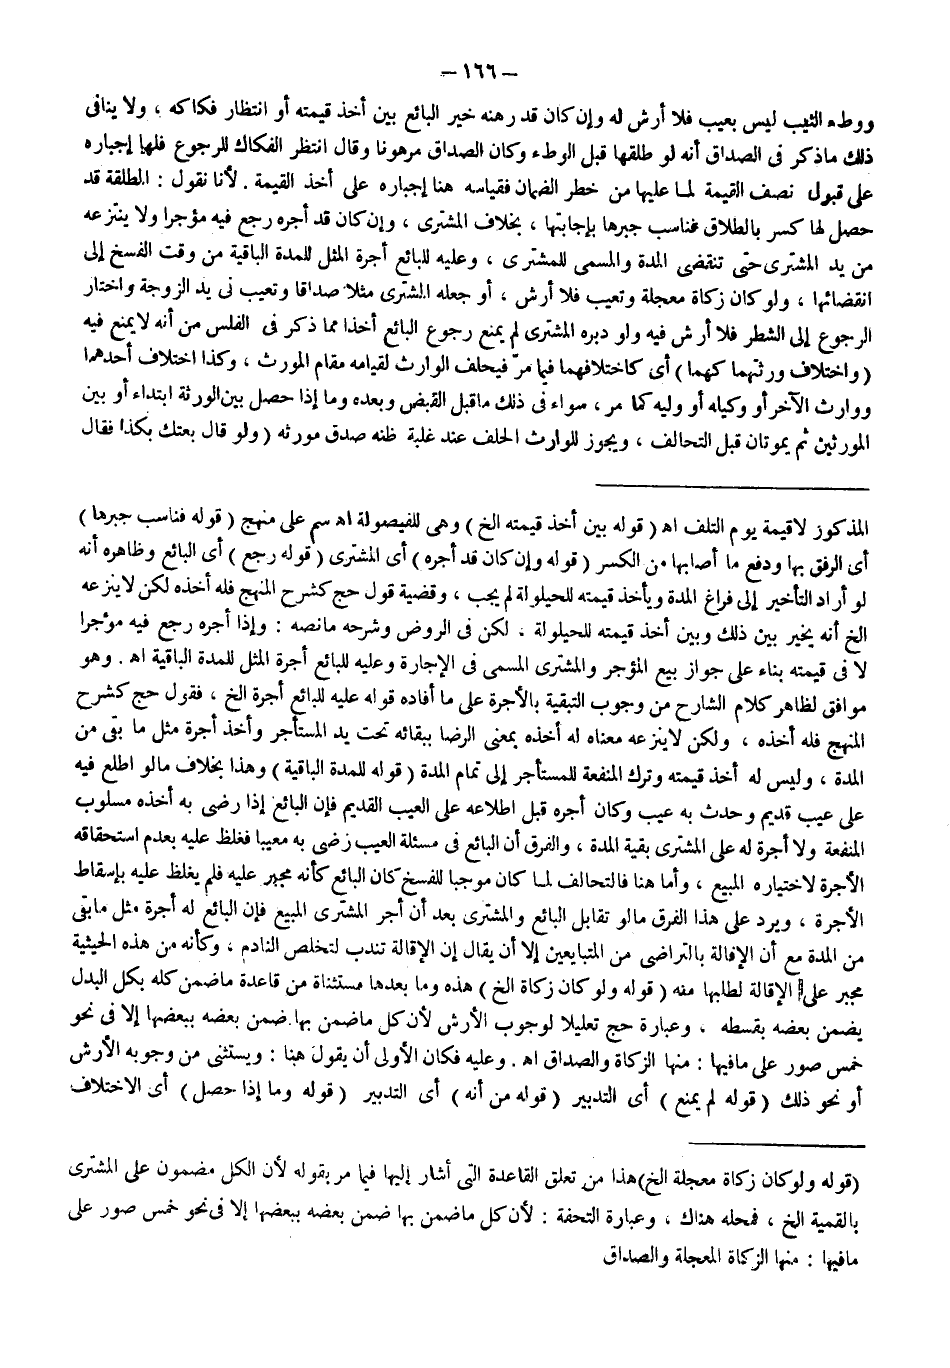 — ١٦٦ —
ووطء الثيب ليس بعيب فلا أرش له وإن كان قد رهنه خير البائع بين أخذ قيمته أو انتظار فكاكه ، ولا ينافى
ذلك ماذكر فى الصداق أنه لو طلقها قبل الوطء وكان الصداق مرهونا وقال انتظر الفكاك للرجوع فلها إجباره
على قبول نصف القيمة لما عليها من خطر الضمان فقياسه هنا إجباره على أخذ القيمة . لأنا نقول : المطلقة قد
حصل لها كسر بالطلاق فناسب جبرها بإجابتها ، بخلاف المشترى ، وإن كان قد أجره رجع فيه مؤجرا ولا ينتزعه
من يد المشترى حتى تنقضى المدة والمسمى للمشترى ، وعليه للبائع أجرة المثل للمدة الباقية من وقت الفسخ إلى
انقضائها ، ولو كان زكاة معجلة وتعيب فلا أرش ، أو جعله المشترى مثلا صداقا وتعيب فى يد الزوجة واختار
الرجوع إلى الشطر فلا أرش فيه ولو دبره المشترى لم يمنع رجوع البائع أخذا مما ذكر فى الفلس من أنه لايمنع فيه
( واختلاف ورثتهما كهما ) أى كاختلافهما فيما مرّ فيحلف الوارث لقيامه مقام المورث ، وكذا اختلاف أحدهما
ووارث الآخر أو وكيله أو وليه كما مر ، سواء فى ذلك ماقبل القبض وبعده وما إذا حصل بين الورثة ابتداء أو بين
المورثين ثم يموتان قبل التحالف ، ويجوز للوارث الحلف عند غلبة ظنه صدق مورثه ( ولو قال بعتك بكذا فقال
المذكور لاقيمة يوم التلف اه ( قوله بين أخذ قيمته الخ ) وهى للفيصولة اه سم على منهج ( قوله فناسب جبرها )
أى الرفق بها ودفع ما أصابها من الكسر ( قوله وإن كان قد أجره ) أى المشترى ( قوله رجع ) أى البائع وظاهره أنه
لو أراد التأخير إلى فراغ المدة ويأخذ قيمته للحيلولة لم يجب ، وقضية قول حج كشرح المنهج فله أخذه لكن لاينزعه
الخ أنه يخير بين ذلك وبين أخذ قيمته للحيلولة ، لكن فى الروض وشرحه مانصه : وإذا أجره رجع فيه مؤجرا
لا فى قيمته بناء على جواز بيع المؤجر والمشترى المسمى فى الإجارة وعليه للبائع أجرة المثل للمدة الباقية اه . وهو
موافق لظاهر كلام الشارح من وجوب التبقية بالأجرة على ما أفاده قوله عليه للبائع أجرة الخ ، فقول حج كشرح
المنهج فله أخذه ، ولكن لاينزعه معناه له أخذه بمعنى الرضا ببقائه تحت يد المستأجر وأخذ أجرة مثل ما بقى من
المدة ، وليس له أخذ قيمته وترك المنفعة للمستأجر إلى تمام المدة ( قوله للمدة الباقية ) وهذا بخلاف مالو اطلع فيه
على عيب قديم وحدث به عيب وكان أجره قبل اطلاعه على العيب القديم فإن البائع إذا رضى به أخذه مسلوب
المنفعة ولا أجرة له على المشترى بقية المدة ، والفرق أن البائع فى مسئلة العيب رضى به معيبا فغلظ عليه بعدم استحقاقه
الأجرة لاختياره المبيع ، وأما هنا فالتحالف لما كان موجبا للفسخ كان البائع كأنه مجبر عليه فلم يغلظ عليه بإسقاط
الأجرة ، ويرد على هذا الفرق مالو تقابل البائع والمشترى بعد أن أجر المشترى المبيع فإن البائع له أجرة مثل مابقى
من المدة مع أن الإقالة بالتراضى من المتبايعين إلا أن يقال إن الإقالة تندب لتخلص النادم ، وكأنه من هذه الحيثية
مجبر على الإقالة لطلبها منه ( قوله ولو كان زكاة الخ ) هذه وما بعدها مستثناة من قاعدة ماضمن كله بكل البدل
يضمن بعضه بقسطه ، وعبارة حج تعليلا لوجوب الأرش لأن كل ماضمن بها ضمن بعضه ببعضها إلا فى نحو
خمس صور على مافيها : منها الزكاة والصداق اه . وعليه فكان الأولى أن يقول هنا : ويستثنى من وجوبه الأرش
أو نحو ذلك ( قوله لم يمنع ) أى التدبير ( قوله من أنه ) أى التدبير ( قوله وما إذا حصل ) أى الاختلاف
(قوله ولو كان زكاة معجلة الخ)هذا من تعلق القاعدة التى أشار إليها فيما مر بقوله لأن الكل مضمون على المشترى
بالقمية الخ ، فمحله هناك ، وعبارة التحفة : لأن كل ماضمن بها ضمن بعضه ببعضها إلا فى نحو خمس صور على
مافيها : منها الزكاة المعجلة والصداق